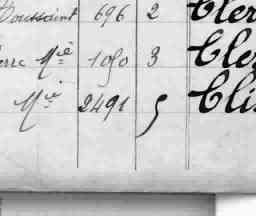 Toussaint 696 2 Cler
erre Mie 1090 3 Cle
Mie 2491 5 Cli